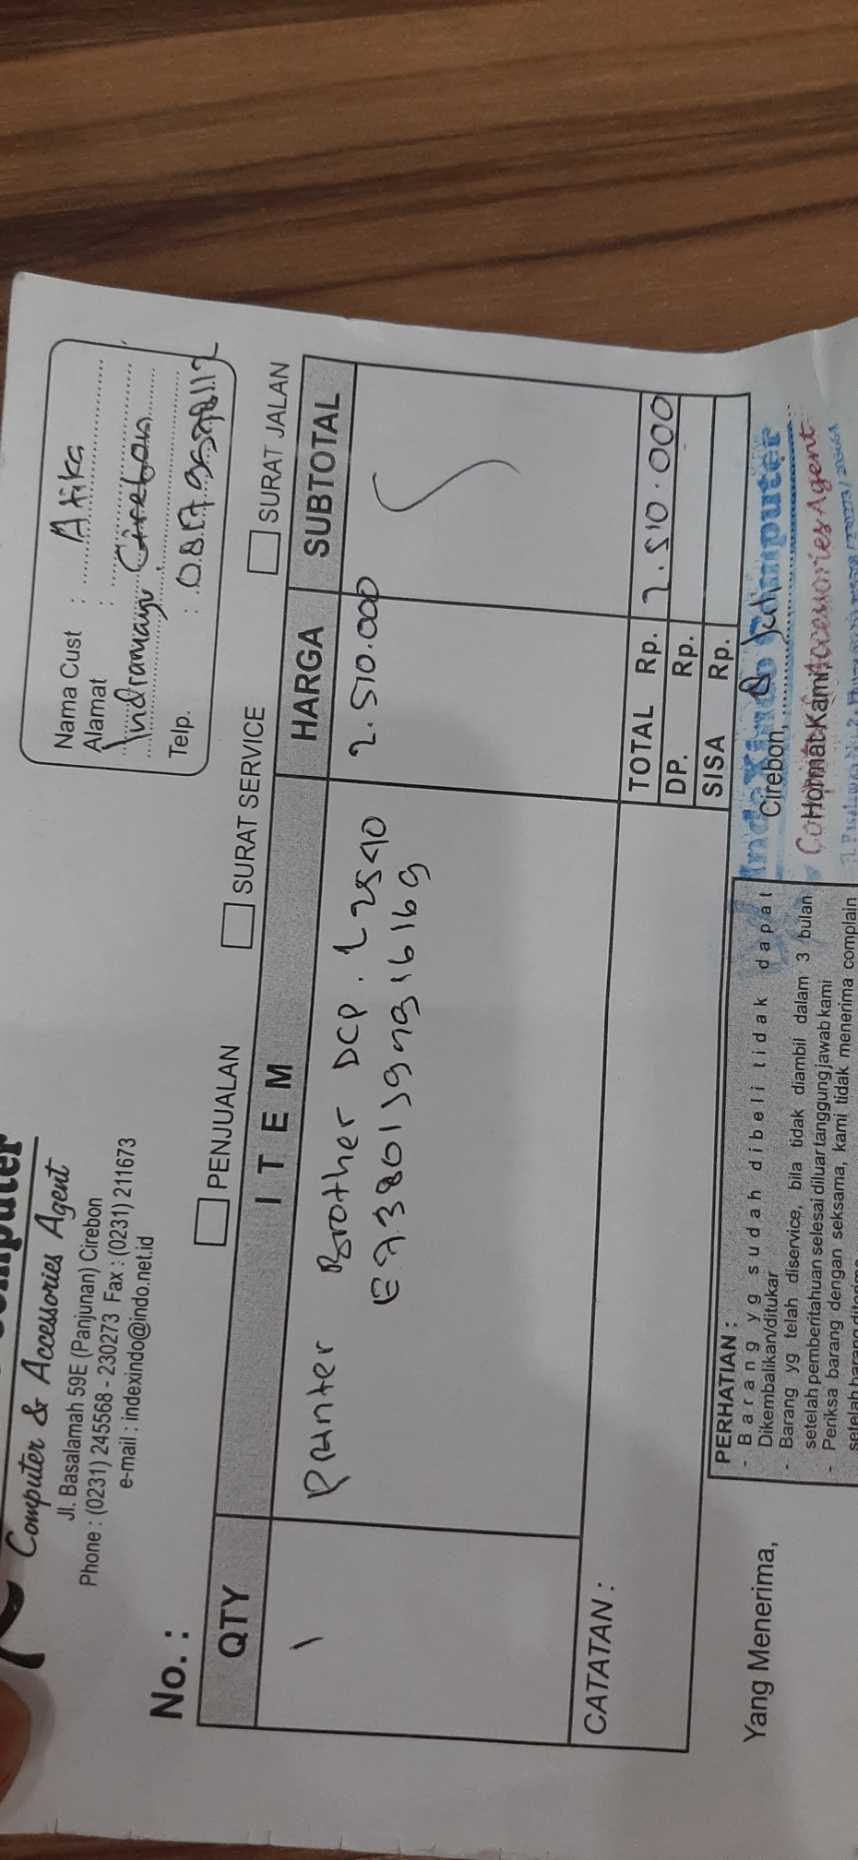 Computer & Accessories Agent
Jl. Basalamah 59E (Panjunan) Cirebon
Phone : (0231) 245568 - 230273 Fax : (0231) 211673
e-mail : indexindo@indo.net.id
Nama Cust : Atika
Alamat :
Indramayu, Cirebon
Telp. :
No. :
PENJUALAN SURAT SERVICE SURAT JALAN
QTY ITEM HARGA SUBTOTAL
1 Printer Brother DCP. L2540 2.510.000
CATATAN :
TOTAL Rp. 2.510.000
DP. Rp.
SISA Rp.
Yang Menerima,
PERHATIAN :
- Barang yg sudah dibeli tidak dapat
Dikembalikan/ditukar
- Barang yg telah diservice, bila tidak diambil dalam 3 bulan
setelah pemberitahuan selesai diluar tanggung jawab kami
- Periksa barang dengan seksama, kami tidak menerima complain
setelah barang
Cirebon,
Hormat Kami
IndeXindo Komputer
Accessories Agent